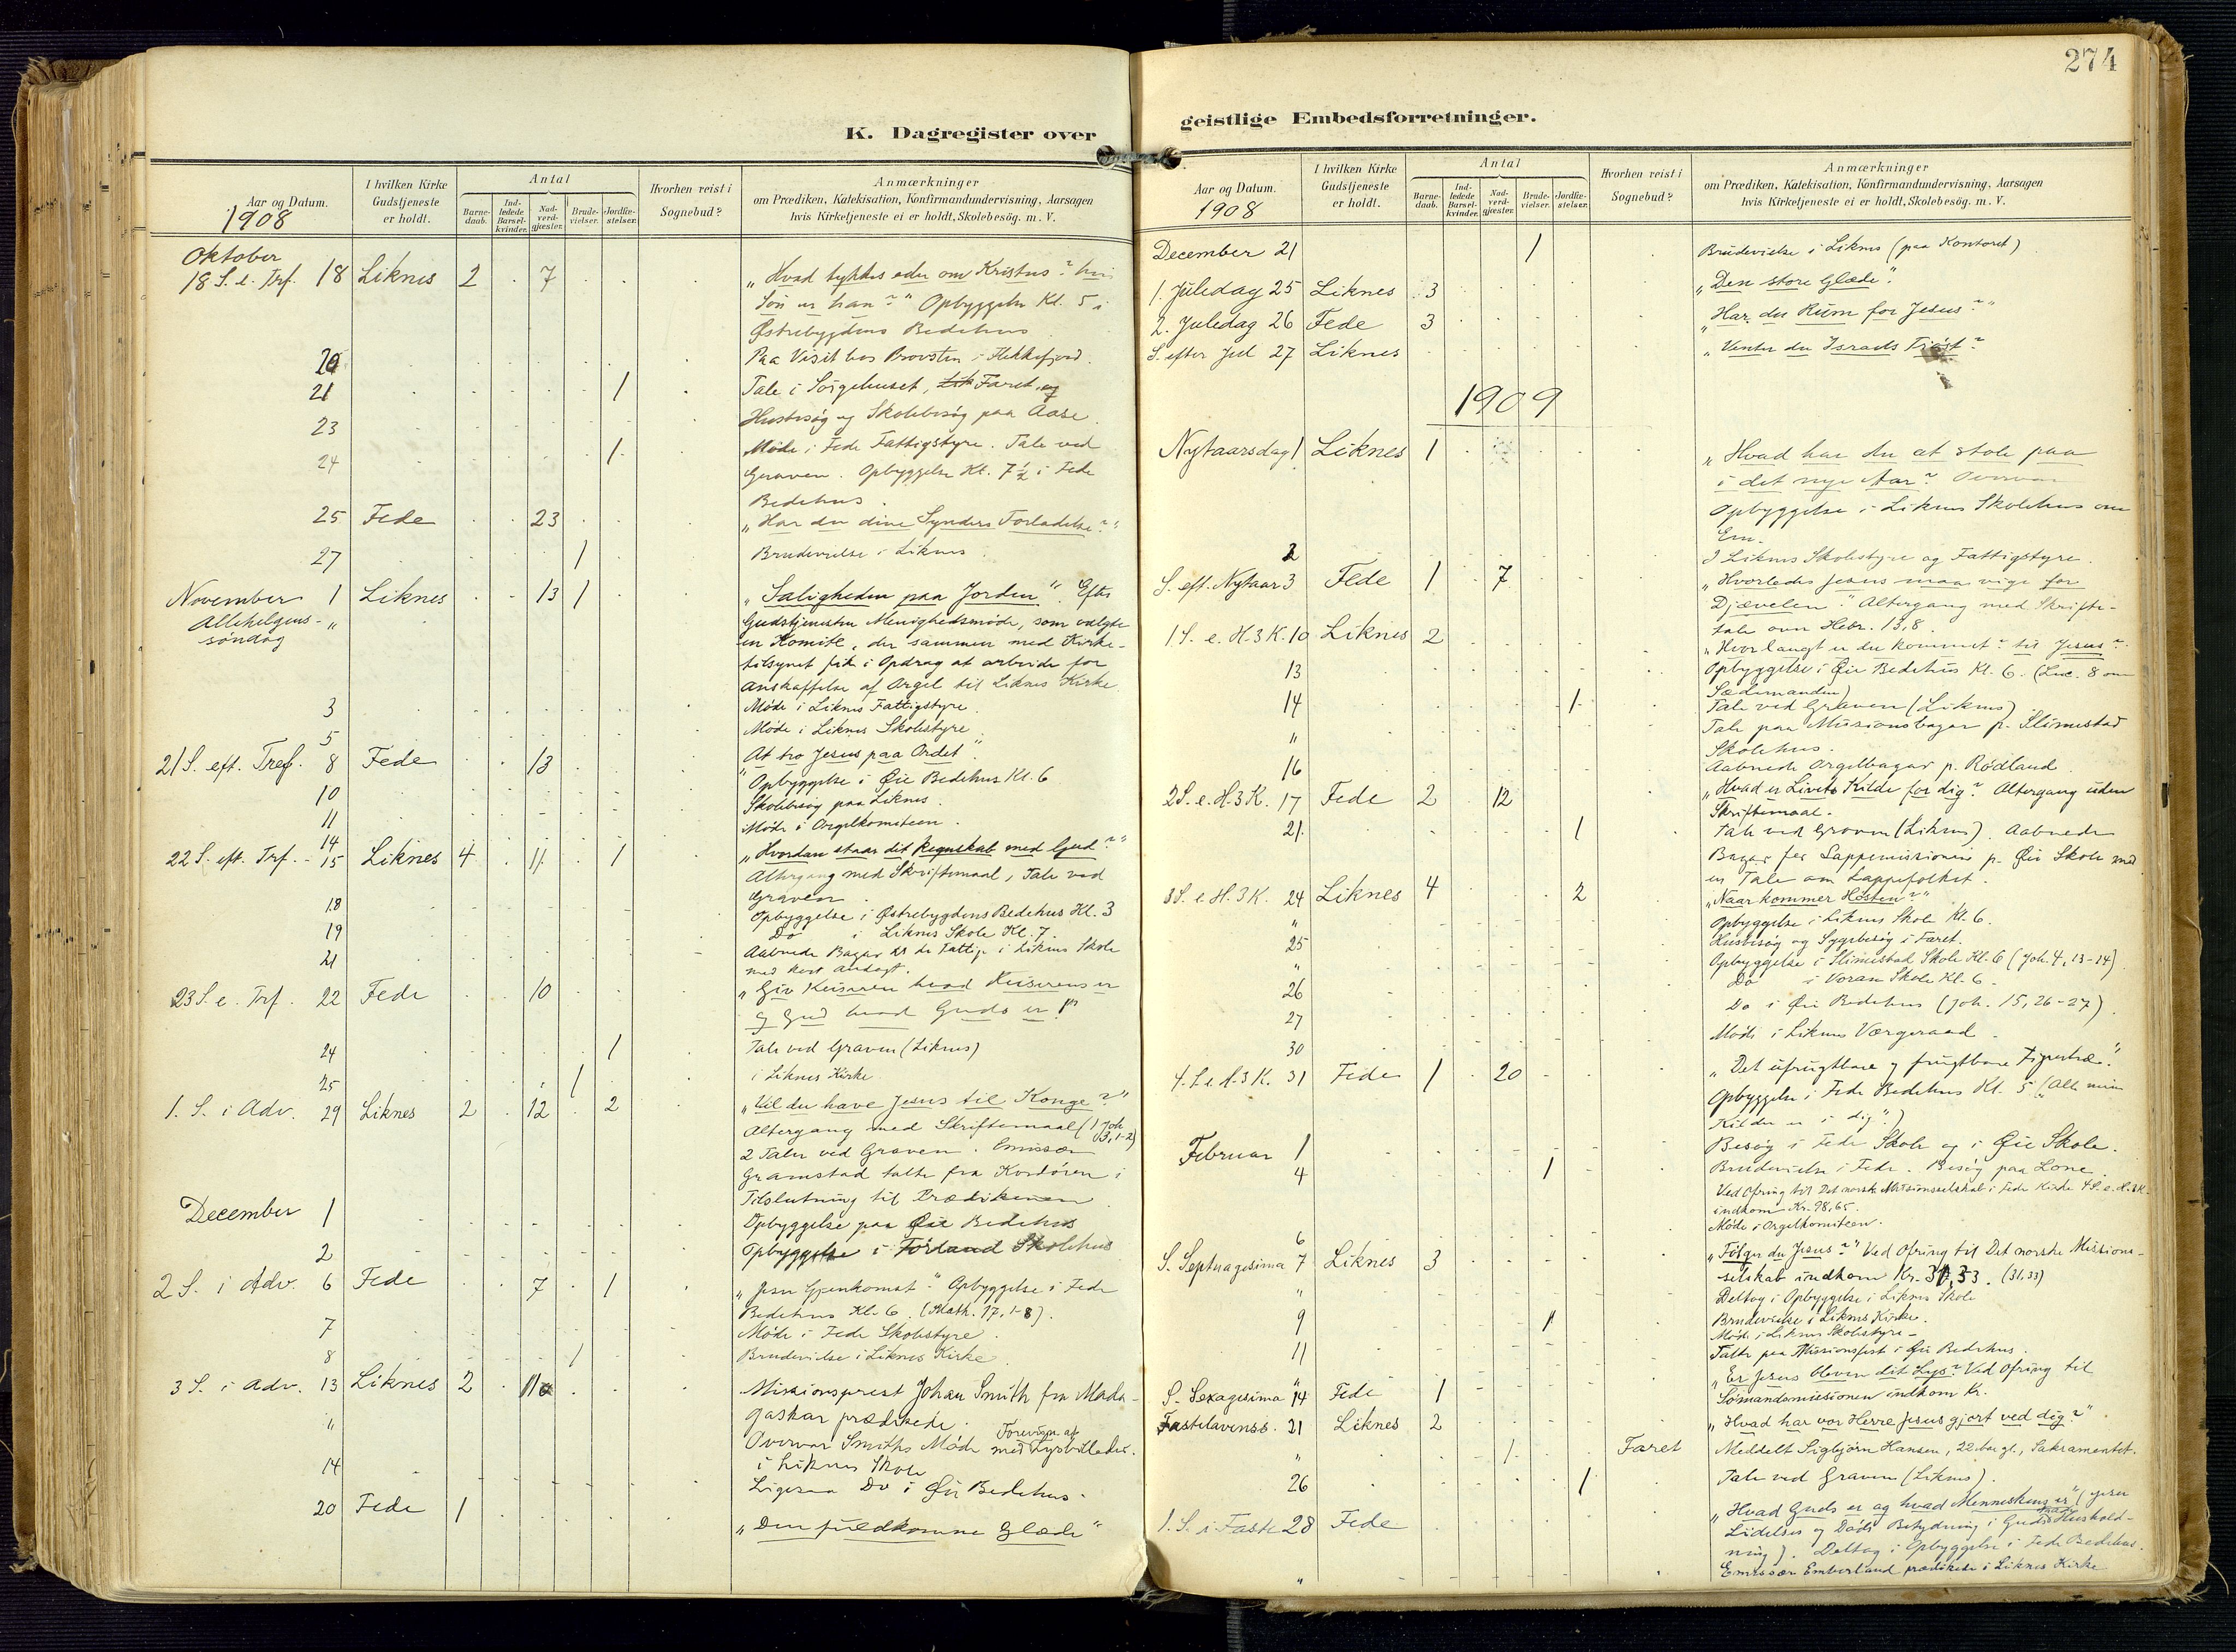 274
K. Dagregister over
geistlige Embedsforretninger.
Aar og Datum.
1908
I hvilken Kirke Gudstjeneste er holdt.
Antal
Barnedaab.
Indledede Barselkvinder.
Nadverdgjæster.
Brudevielser.
Jordfæstelser.
Hvorhen reist i Sognebud?
Anmærkninger
om Prædiken, Katekisation, Konfirmandundervisning, Aarsagen
hvis Kirketjeneste ei er holdt, Skolebesög. m. V.
Oktober
18 S. e. Trf. 18 Liknes 2 7 „Hvad tykkes eder om Kristus? hvis
Søn er han?" Opbyggelse Kl. 5 i
Østrebygdens Bedehus
20 Paa Visit hos Provsten i Flekkefjord.
21 1 Tale i Sörgehuset, Faret, og
23 Husbesøg og Skolebesøg paa Aase.
24 1 Møde i Fede Fattigstyre. Tale ved
Graven. Opbyggelse Kl. 7½ i Fede
Bedehus.
25 Fede 23 „Har du dine Synders Forladelse?"
27 1 Brudevielse i Liknes.
November 1 Liknes 13 1 „Saligheden paa Jorden". Efter
Allehelgens- "
söndag
Gudstjenesten Menighedsmøde, som valgte
en Komite, der sammen med Kirke-
tilsynet fik i Opdrag at arbeide for
Anskaffelse af Orgel til Liknes Kirke
3 Møde i Liknes Fattigstyre.
5 Møde i Liknes Skolestyre.
21 S. eft. Tref. 8 Fede 13 „At tro Jesus paa Ordet"
" Opbyggelse i Øie Bedehus Kl. 6
10 Skolebesøg paa Liknes.
11 Møde i Orgelkomiteen.
14
22 S. eft. Trf. - 15 Liknes 4 11 1 „Hvordan staar dit Regnskab med Gud?"
Altergang med Skriftemaal, Tale ved
Graven.
18 Opbyggelse i Østrebygdens Bedehus Kl. 3
19 Do i Liknes Skole Kl. 7.
21 Aabnede Bazar for de Fattige i Liknes Skole
med kort Andagt.
23 S. e. Trf. 22 Fede 10 „Giv Keiseren hvad Keiserens er
og Gud hvad Guds er!"
24 1 Tale ved Graven (Liknes)
25 1 i Liknes Kirke.
1. S. i Adv. 29 Liknes 2 12 2 „Vil du have Jesus til Konge?"
Altergang med Skriftemaal (1 Joh 3, 1-2)
2 Taler ved Graven. Emissær
Gramstad talte fra Kordören i
Tilslutning til Prædikenen
December 1 Opbyggelse paa Øie Bedehus
2 Opbyggelse i Förland Skolehus
2 S. i Adv. 6 Fede 7 1 „Jesu Gjenkomst." Opbyggelse i Fede
Bedehus Kl. 6. (Math. 17, 1-8).
7 Møde i Fede Skolestyre.
8 1 Brudevielse i Liknes Kirke
3 S. i Adv. 13 Liknes 2 Missionsprest Johan Smith fra Mada-
gaskar prædikede.
" Overvar Smiths Møde med Forevisn. af Lysbilleder.
i Liknes Skole
14 Ligesaa Do i Øie Bedehus.
20 Fede 1 „Den fuldkomne Glæde"
Aar og Datum.
1908
I hvilken Kirke Gudstjeneste er holdt.
Antal
Barnedaab.
Indledede Barselkvinder.
Nadverdgjæster.
Brudevielser.
Jordfæstelser.
Hvorhen reist i Sognebud?
Anmærkninger
om Prædiken, Katekisation, Konfirmandundervisning, Aarsagen
hvis Kirketjeneste ei er holdt, Skolebesög. m. V.
December 21 1 Brudevielse i Liknes (paa Kontoret)
1. Juledag 25 Liknes 3 „Den store Glæde".
2. Juledag 26 Fede 3 „Har du Rum for Jesus?"
S. efter Jul 27 Liknes „Venter du Israels Tröst?"
1909
Nytaarsdag 1 Liknes 1 „Hvad har du at stole paa
i det nye Aar? Overvar
Opbyggelse i Liknes Skolehus om
Em.
2 I Liknes Skolestyre og Fattigstyre.
S. eft. Nytaar 3 Fede 1 7 „Hvorledes Jesus maa vige for
Djævelen." Altergang med Skrifte-
tale over Hebr. 13,8.
1 S. e. H. 3 K. 10 Liknes 2 „Hvor langt er du kommet? til Jesus?
13 Opbyggelse i Øie Bedehus Kl. 6. (Luc. 8 om
Sædemanden)
14 1 Tale ved Graven (Liknes)
" Tale paa Missionsbazar p. Slimestad
Skolehus.
16 Aabnede Orgelbazar p. Rödland
2 S. e. H. 3 K. 17 Fede 2 12 „Hvad er Livets Kilde for dig? Altergang uden
Skriftemaal.
21. 1 Tale ved Graven (Liknes). Aabnede
Bazar for Lappemissionen p. Øie Skole med
en Tale om Lappefolket.
3 S. e H. 3 K. 24 Liknes 4 2 „Naar kommer Høsten?"
" Opbyggelse i Liknes Skole Kl. 6.
25 Husbesøg og Sygebesøg i Faret.
" Opbyggelse i Slimestad Skole Kl. 6 (Joh. 4, 13-14)
26 Do i Voran Skole Kl. 6.
27 Do i Øie Bedehus (Joh. 15, 26-27).
30 Møde i Liknes Værgeraad.
4. S. e. H. 3 K. 31 Fede 1 20 „Det ufrugtbare og frugtbare Figentræ."
Opbyggelse i Fede Bedehus Kl. 5 („Alle mine
Kilder er i dig")
Februar 1 Besøg i Fede Skole og i Øie Skole.
4 1 Brudevielse i Fede. Besøg paa Lone.
Ved Ofring til Det norske Missionsselskab i Fede Kirke 4 S. e. H. 3 K.
indkom Kr. 98,65.
6 Møde i Orgelkomiteen.
S. Septuagesima 7 Liknes 3 „Følger du Jesus?" Ved Ofring til Det norske Missions-
selskab indkom Kr. 31,33. (31,33)
" Deltog i Opbyggelse i Liknes Skole
9 1 Brudevielse i Liknes Kirke.
Møde i Liknes Skolestyre.
11 Talte paa Missionsfest i Øie Bedehus.
S. Sexagesima 14 Fede 1 „Er Jesus bleven dit Lys? Ved Ofring til
Sømandsmissionen indkom Kr.
Fastelavenss. 21 Liknes 2 „Hvad har vor Herre Jesus gjort ved dig?"
" 1 Faret Meddelt Sigbjörn Hansen, 22 Aar gl., Sakramentet.
26 1 Tale ved Graven (Liknes).
1. S. i Faste 28 Fede „Hvad Guds er og hvad Menneskens er" (Jesu
Lidelses og Døds Betydning i Guds Hushold-
ning). Deltog i Opbyggelse i Fede Bedehus.
" Emissær Emberland prædikede i Liknes Kirke